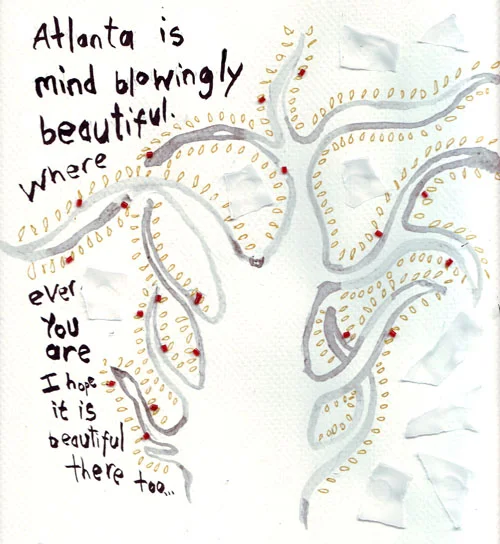 Atlanta is
mind blowingly
beautiful.
Where
ever
You
are
I hope
it is
beautiful
there too...